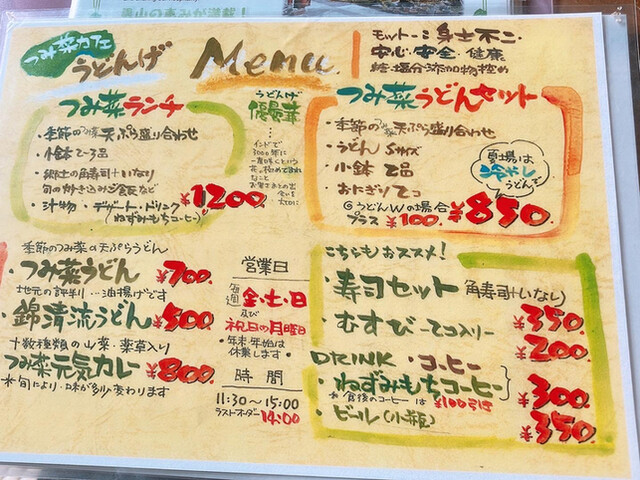 つみ菜カフェ
うどんげ
Menu
モットーは身土不二
安心・安全・健康
糖・塩分・添加物控め
つみ菜ランチ
・季節のつみ菜天ぷら盛り合わせ
・小鉢 2~3品
・郷土の角寿司+いなり
旬の炊き込みご飯など
・汁物・デザート・ドリンク
(ねずみもちコーヒー)
¥1200
うどんげ
優曇華
インドで
3000年に
つみ菜うどんセット
・季節のつみ菜天ぷら盛り合わせ
・うどん Sサイズ
・小鉢 2品
・おにぎり 2コ
◎うどんWの場合
プラス ¥100.
¥850.
夏場は
冷やし
うどんで
季節のつみ菜の天ぷらうどん
・つみ菜うどん ¥700.
地元の評判…油揚げです
・錦清流うどん ¥500
十数種類の山菜・薬草入り
つみ菜元気カレー ¥800
※旬により・味が多少変わります
営業日
毎週 金・土・日
及び
祝日の月曜日
・年末・年始は
休業します・
時間
11:30~15:00
ラストオーダー 14:00
こちらもおススメ!
・寿司セット 角寿司+いなし)
¥350.
・むすび-2コ入り-
¥200.
DRINK・コーヒー
・ねずみもちコーヒー
¥300.
※食後のコーヒーは¥100引き
・ビール(小瓶) ¥350.